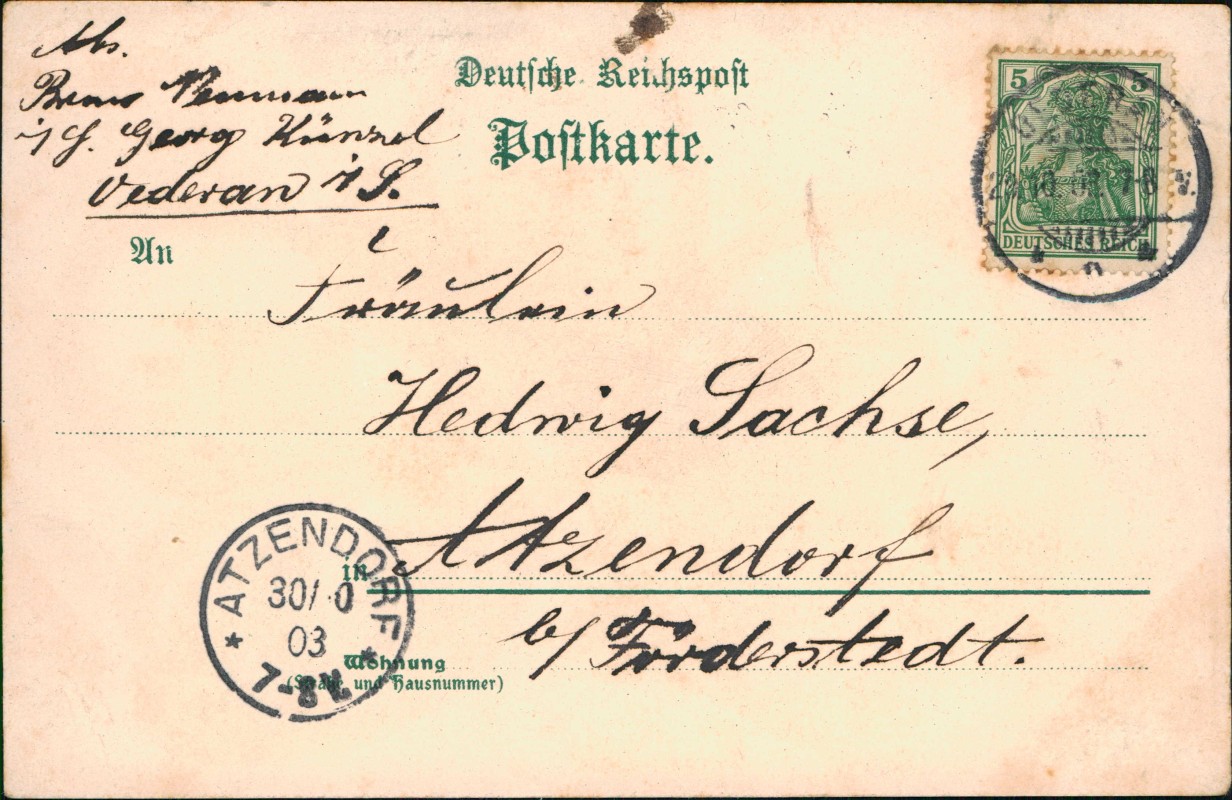 Abs.
Bruno Neumann
i/ F. Georg Künzel
Oederan i/ S.
Deutsche Reichspost
Postkarte.
5 5
DEUTSCHES REICH
7-8 N.
An
Fräulein
Hedwig Sachse,
in Atzendorf
b/ Förderstedt.
Wohnung
(Straße und Hausnummer)
ATZENDORF
30/ 0
03
7-8 V.